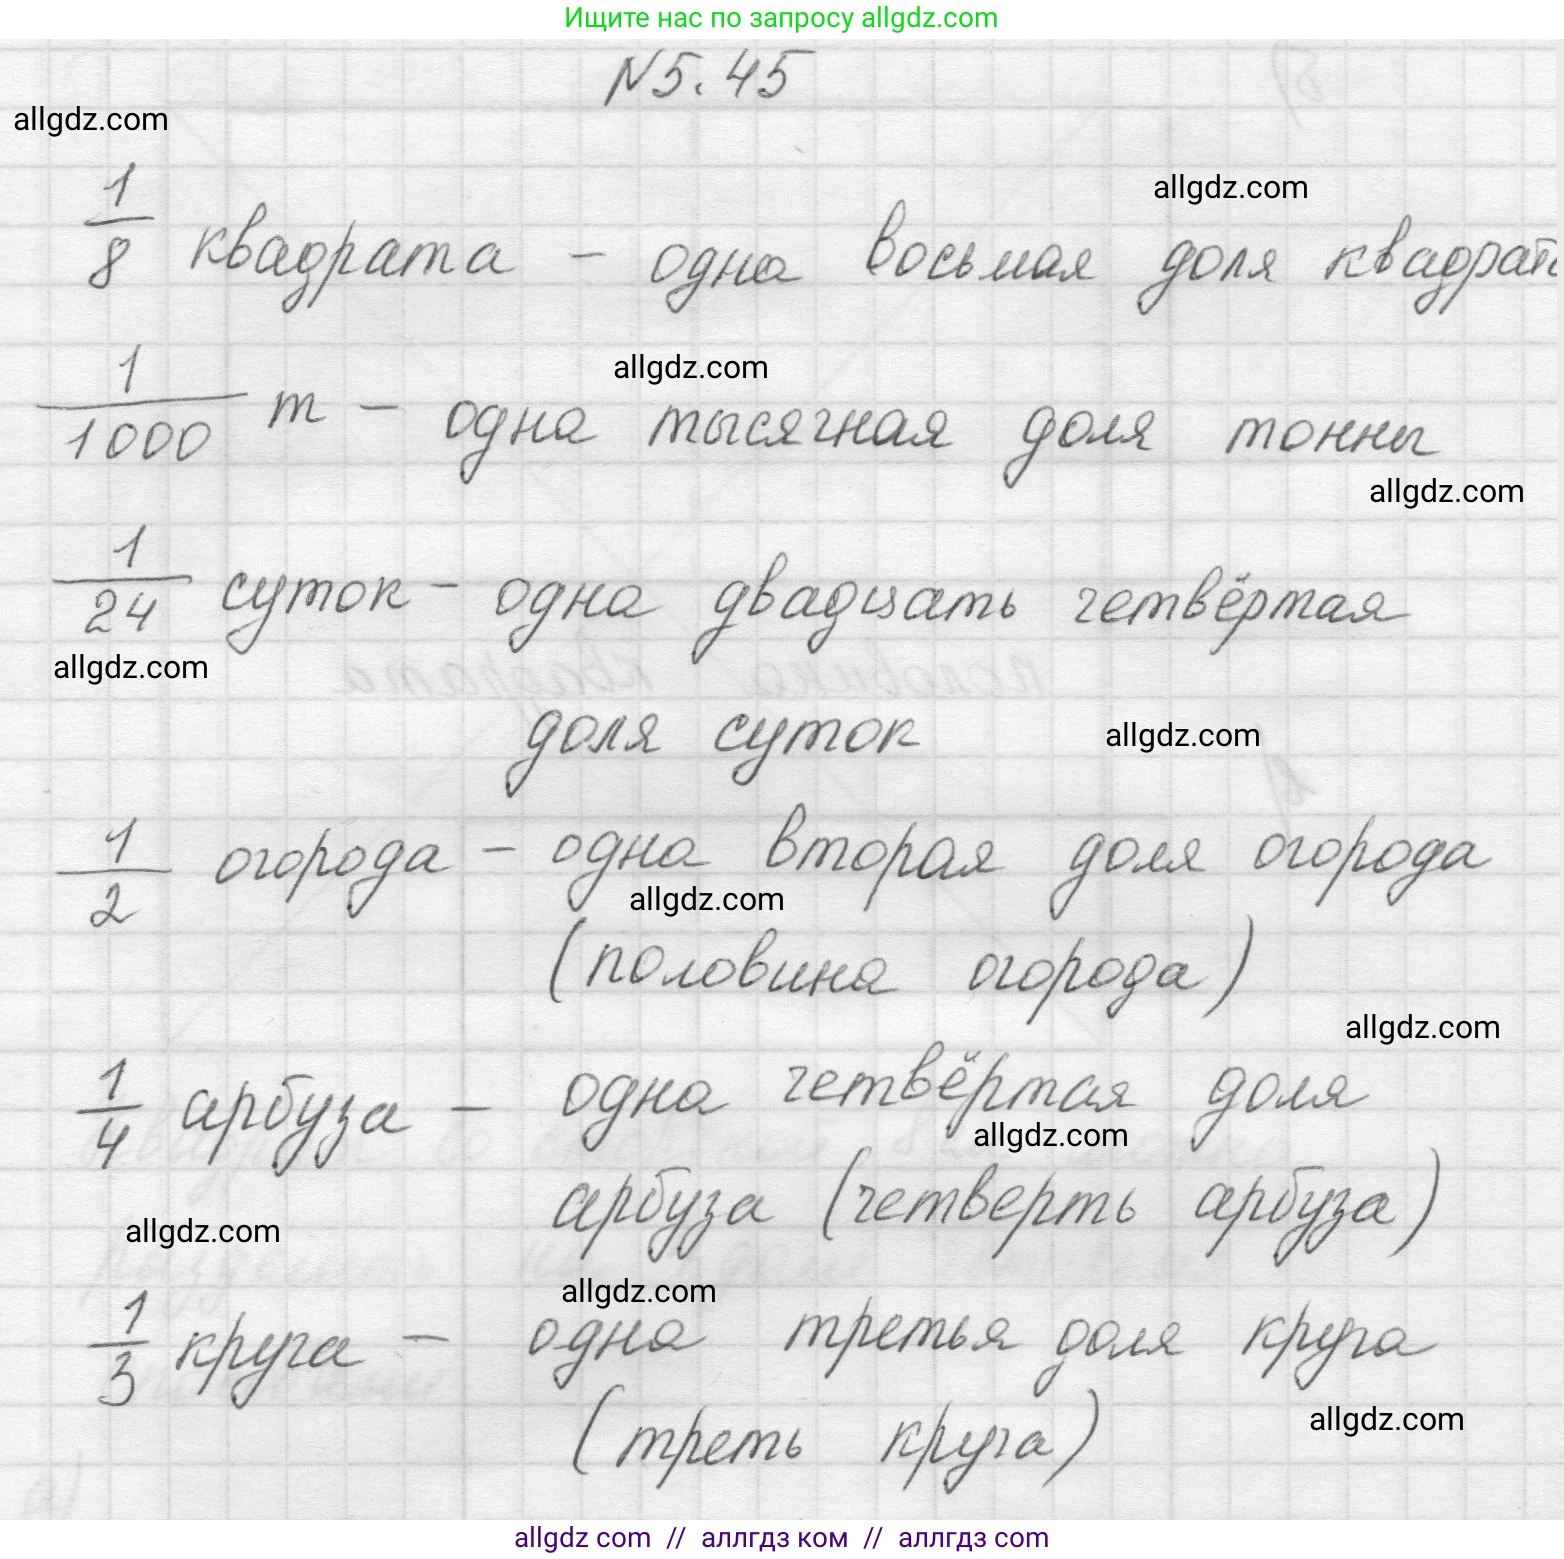 Ищите нас по запросу allgdz.com
N5.45
allgdz.com
allgdz.com
1/8 квадрата – одна восьмая доля квадрата
allgdz.com
1/1000 т – одна тысячная доля тонны
allgdz.com
1/24 суток – одна двадцать четвёртая
allgdz.com
доля суток
allgdz.com
1/2 огорода – одна вторая доля огорода
allgdz.com
(половина огорода)
allgdz.com
1/4 арбуза – одна четвёртая доля
allgdz.com
арбуза (четверть арбуза)
allgdz.com
allgdz.com
1/3 круга – одна третья доля круга
allgdz.com
(треть круга)
allgdz com // аллгдз ком // аллгдз com